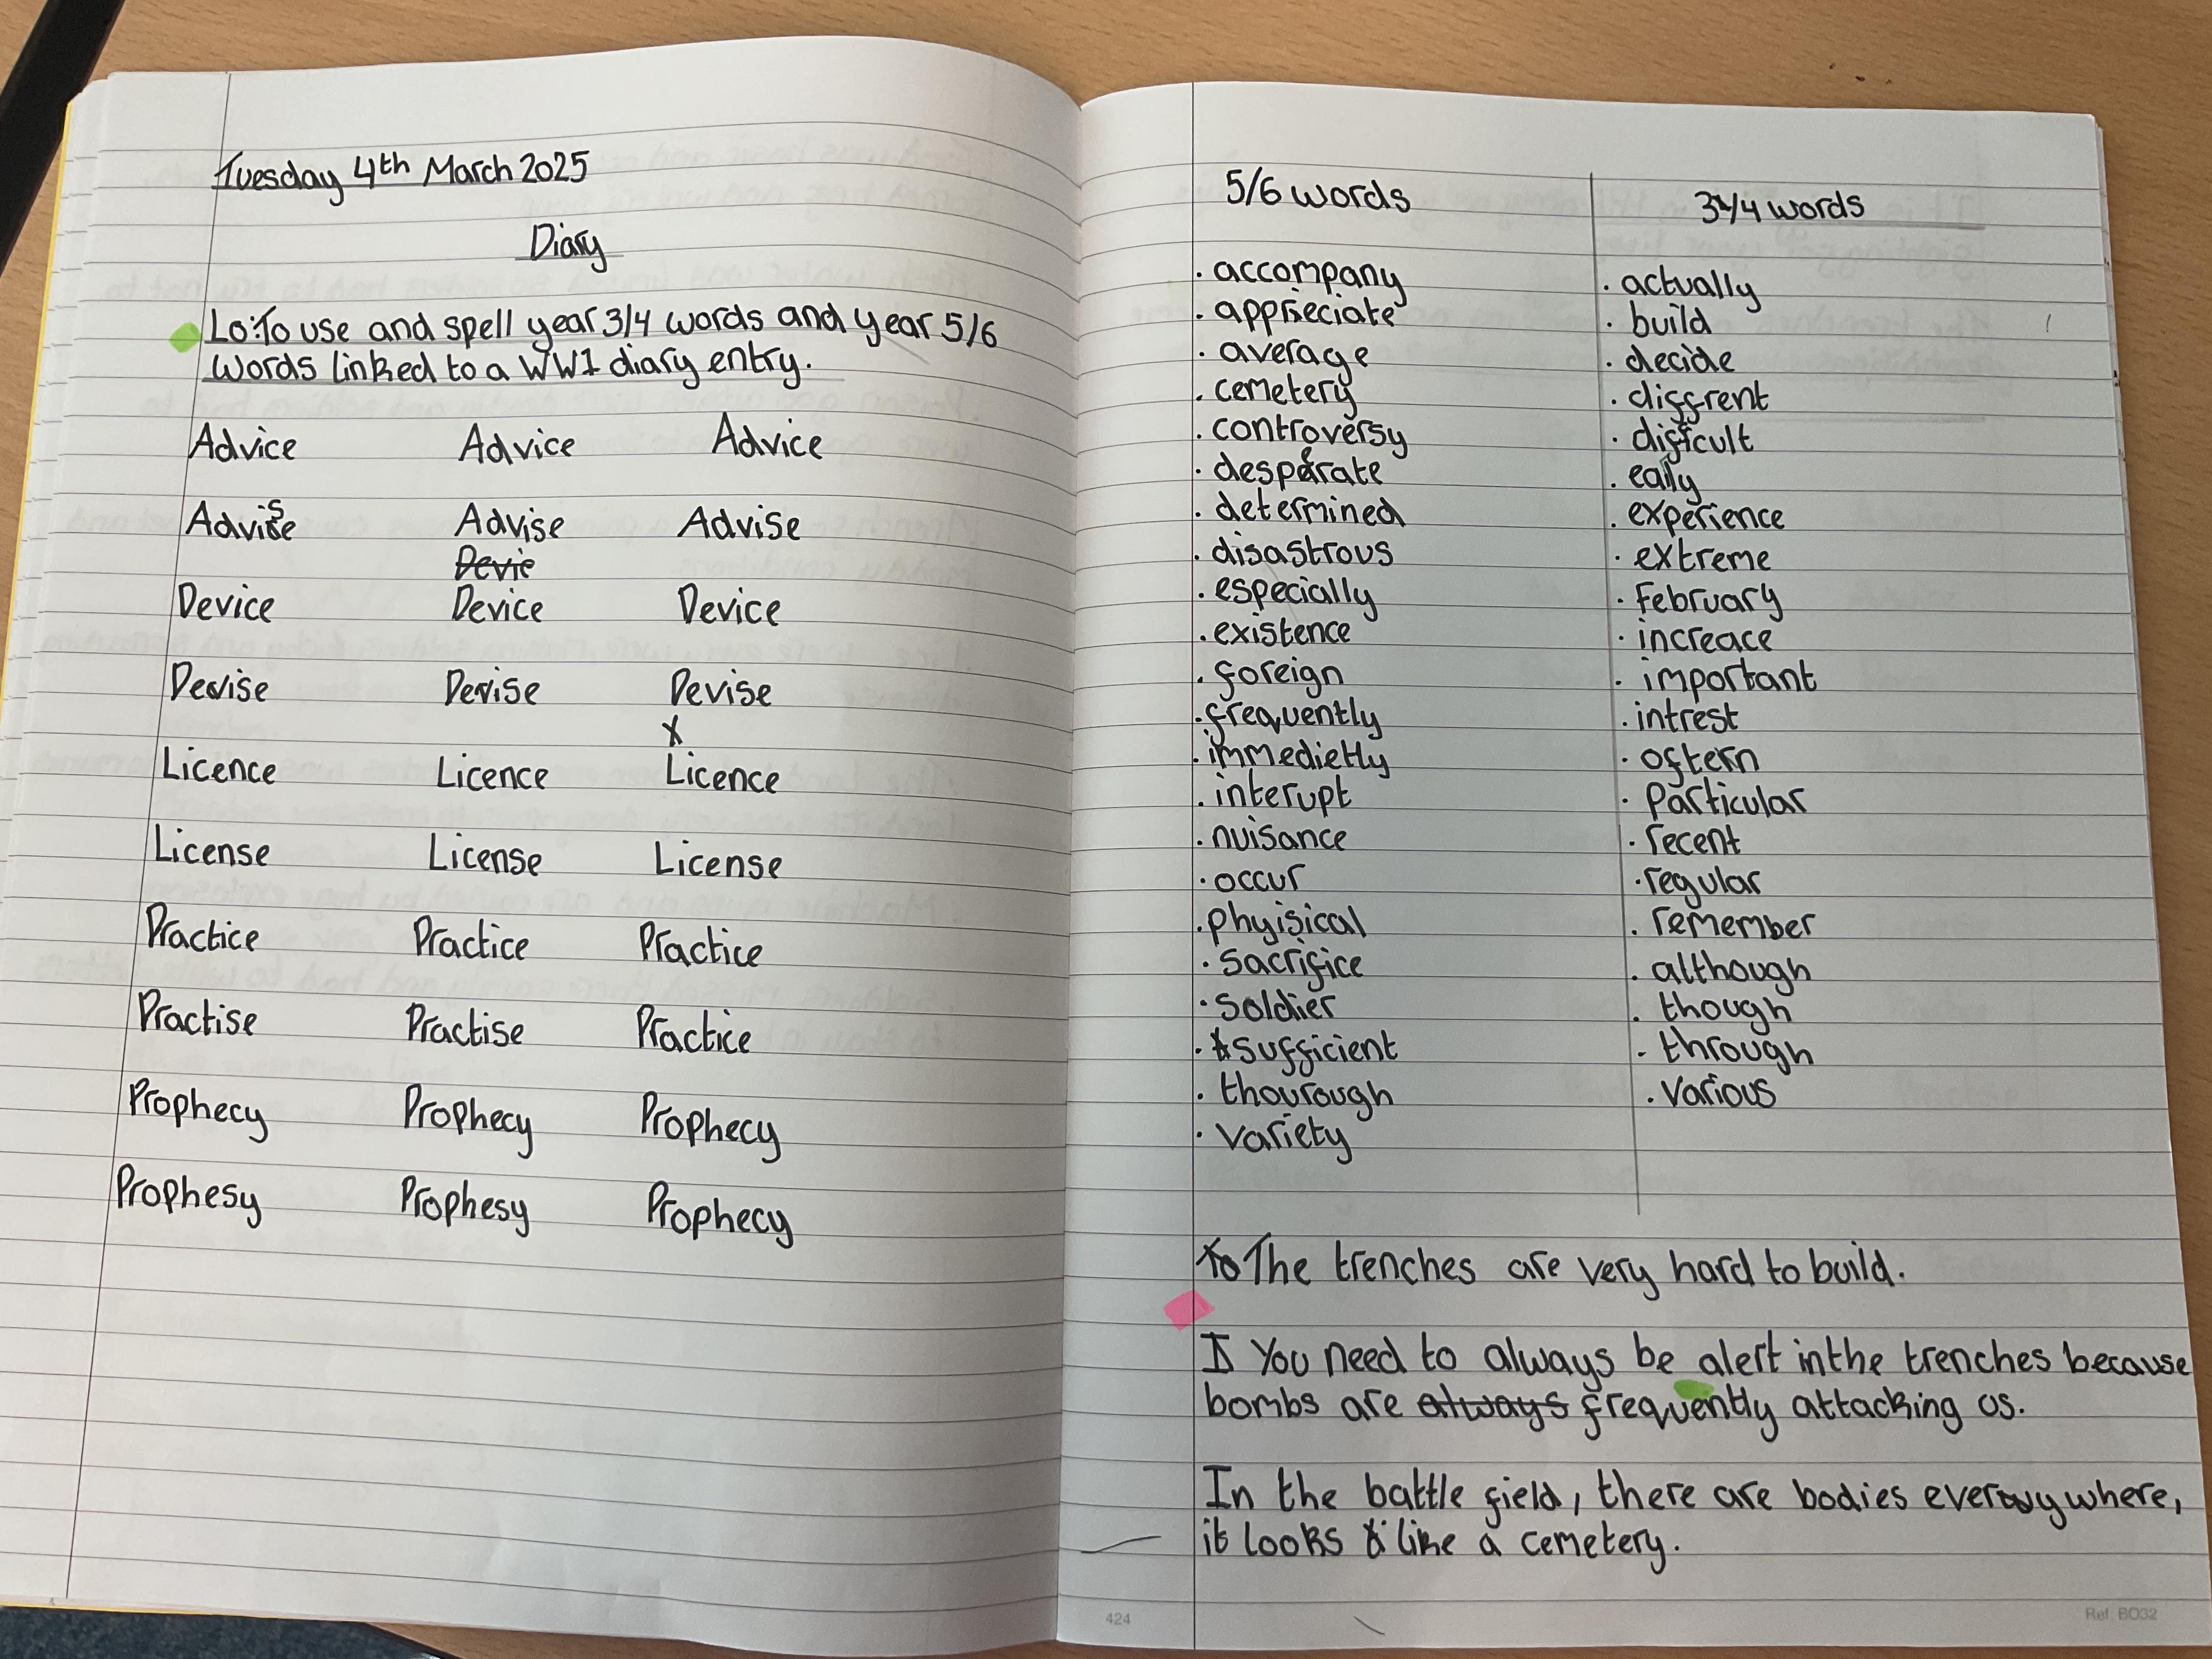 Tuesday 4th March 2025
Diary
Lo: To use and spell year 3/4 words and year 5/6
words linked to a WW1 diary entry.
Advice Advice Advice
Advise Advise Advise
Devie
Device Device Device
Devise Devise Devise
x
Licence Licence Licence
License License License
Practice Practice Practice
Practise Practise Practice
Prophecy Prophecy Prophecy
Prophesy Prophesy Prophecy
5/6 words
. accompany
. apprieciate
. average
. cemetery
. controversy
. desperate
. determined
. disastrous
. especially
. existence
. foreign
. frequently
. immedietly
. interupt
. nuisance
. occur
. phyisical
. sacrifice
. soldier
. sufficient
. thourough
. variety
3/4 words
. actually
. build
. decide
. diffrent
. difficult
. early
. experience
. extreme
. February
. increace
. important
. intrest
. oftern
. particular
. recent
. regular
. remember
. although
. though
. through
. various
To The trenches are very hard to build.
I You need to always be alert in the trenches because
bombs are always frequently attacking us.
In the battle field, there are bodies everywhere,
it looks like a cemetery.
424
Ref: BO32